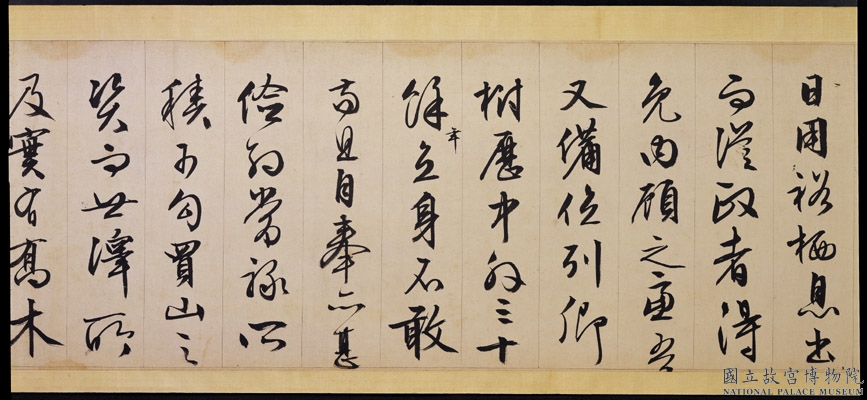 日用裕栖息出
而從政者得
免內顧之吾
又備位列卿
樹歷中外三十
餘年立身不敢
苟且自奉亦甚
儉約常祿所
積可勾買山之
資而世澤所
及實有喬木
國立故宮博物院
NATIONAL PALACE MUSEUM